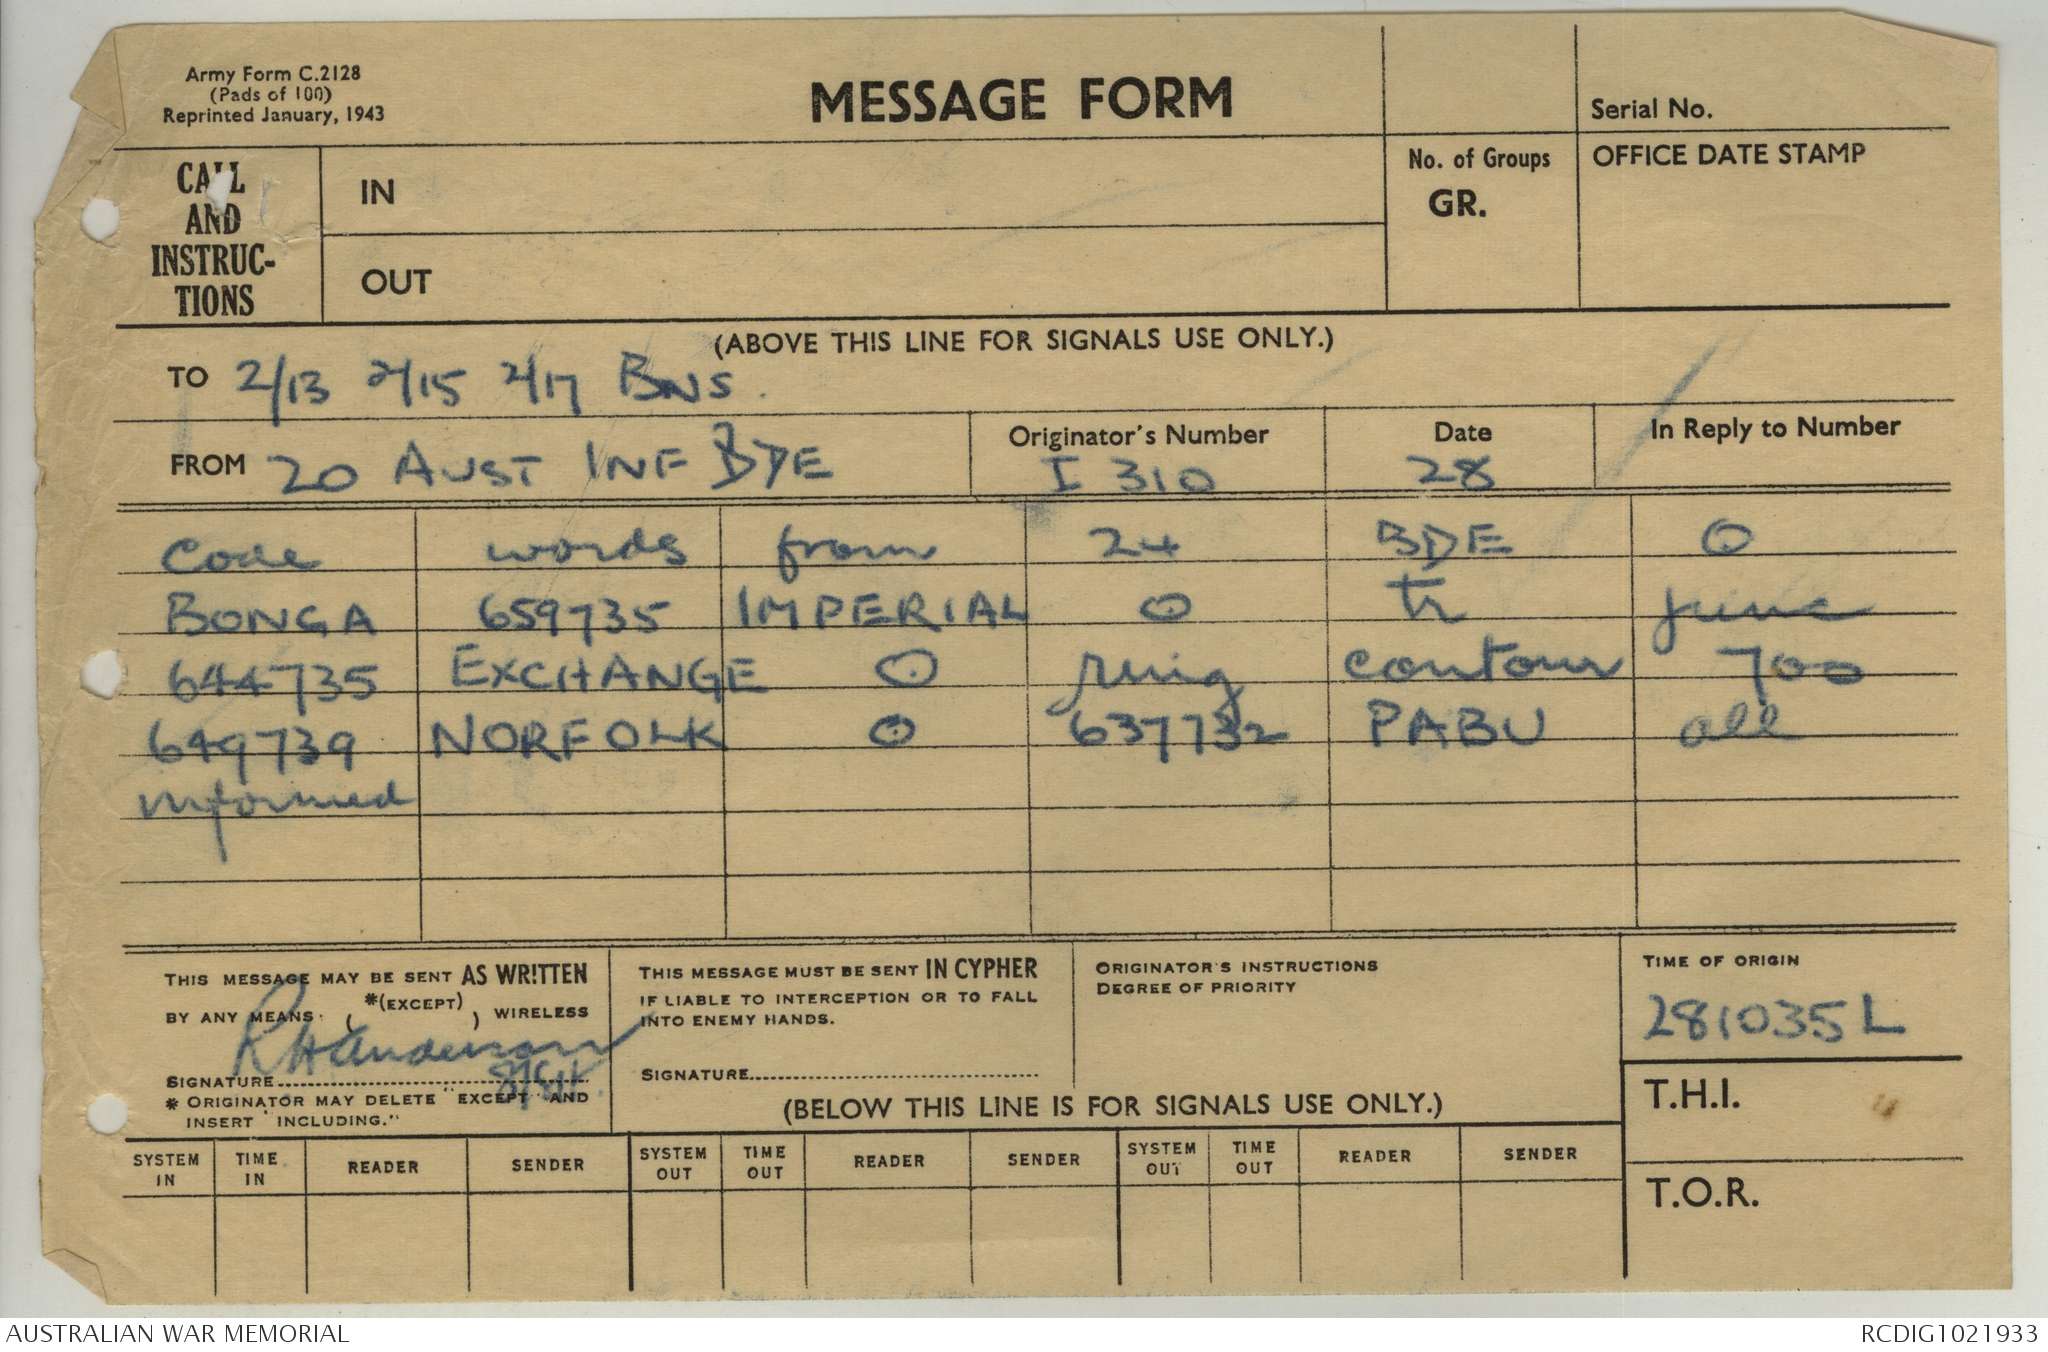 Army Form C.2128
(Pads of 100)
Reprinted January, 1943
MESSAGE FORM
Serial No.
CALL
AND
INSTRUC-
TIONS
IN
OUT
No. of Groups
GR.
OFFICE DATE STAMP
(ABOVE THIS LINE FOR SIGNALS USE ONLY.)
TO 2/13 2/15 2/17 BNS.
FROM 20 AUST INF BDE
Originator's Number
I 310
Date
28
In Reply to Number
code words from 24 BDE O
BONGA 659735 IMPERIAL O tr junc
644735 EXCHANGE O ring contour 700
649739 NORFOLK O 637732 PABU all
informed
THIS MESSAGE MAY BE SENT AS WRITTEN
BY ANY MEANS *(EXCEPT) WIRELESS
SIGNATURE
RHAnderson
* ORIGINATOR MAY DELETE "EXCEPT" AND
INSERT "INCLUDING."
THIS MESSAGE MUST BE SENT IN CYPHER
IF LIABLE TO INTERCEPTION OR TO FALL
INTO ENEMY HANDS.
SIGNATURE
ORIGINATOR'S INSTRUCTIONS
DEGREE OF PRIORITY
TIME OF ORIGIN
281035L
(BELOW THIS LINE IS FOR SIGNALS USE ONLY.)
T.H.I.
T.O.R.
SYSTEM IN TIME IN READER SENDER SYSTEM OUT TIME OUT READER SENDER SYSTEM OUT TIME OUT READER SENDER
AUSTRALIAN WAR MEMORIAL
RCDIG1021933